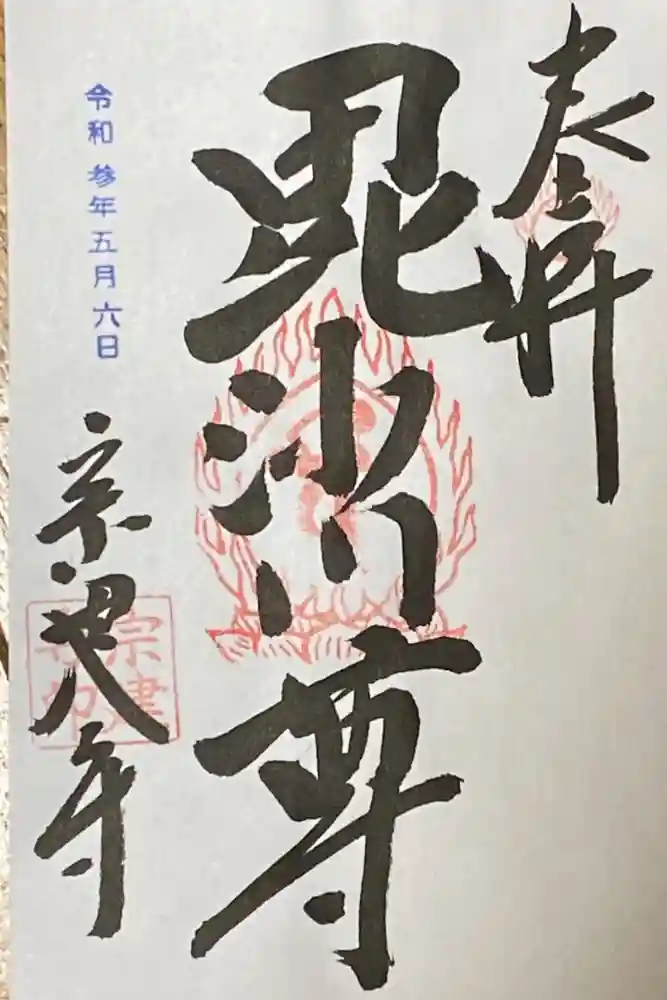 奉拝
毘沙門尊
令和参年五月六日
宗建寺
宗建
寺印